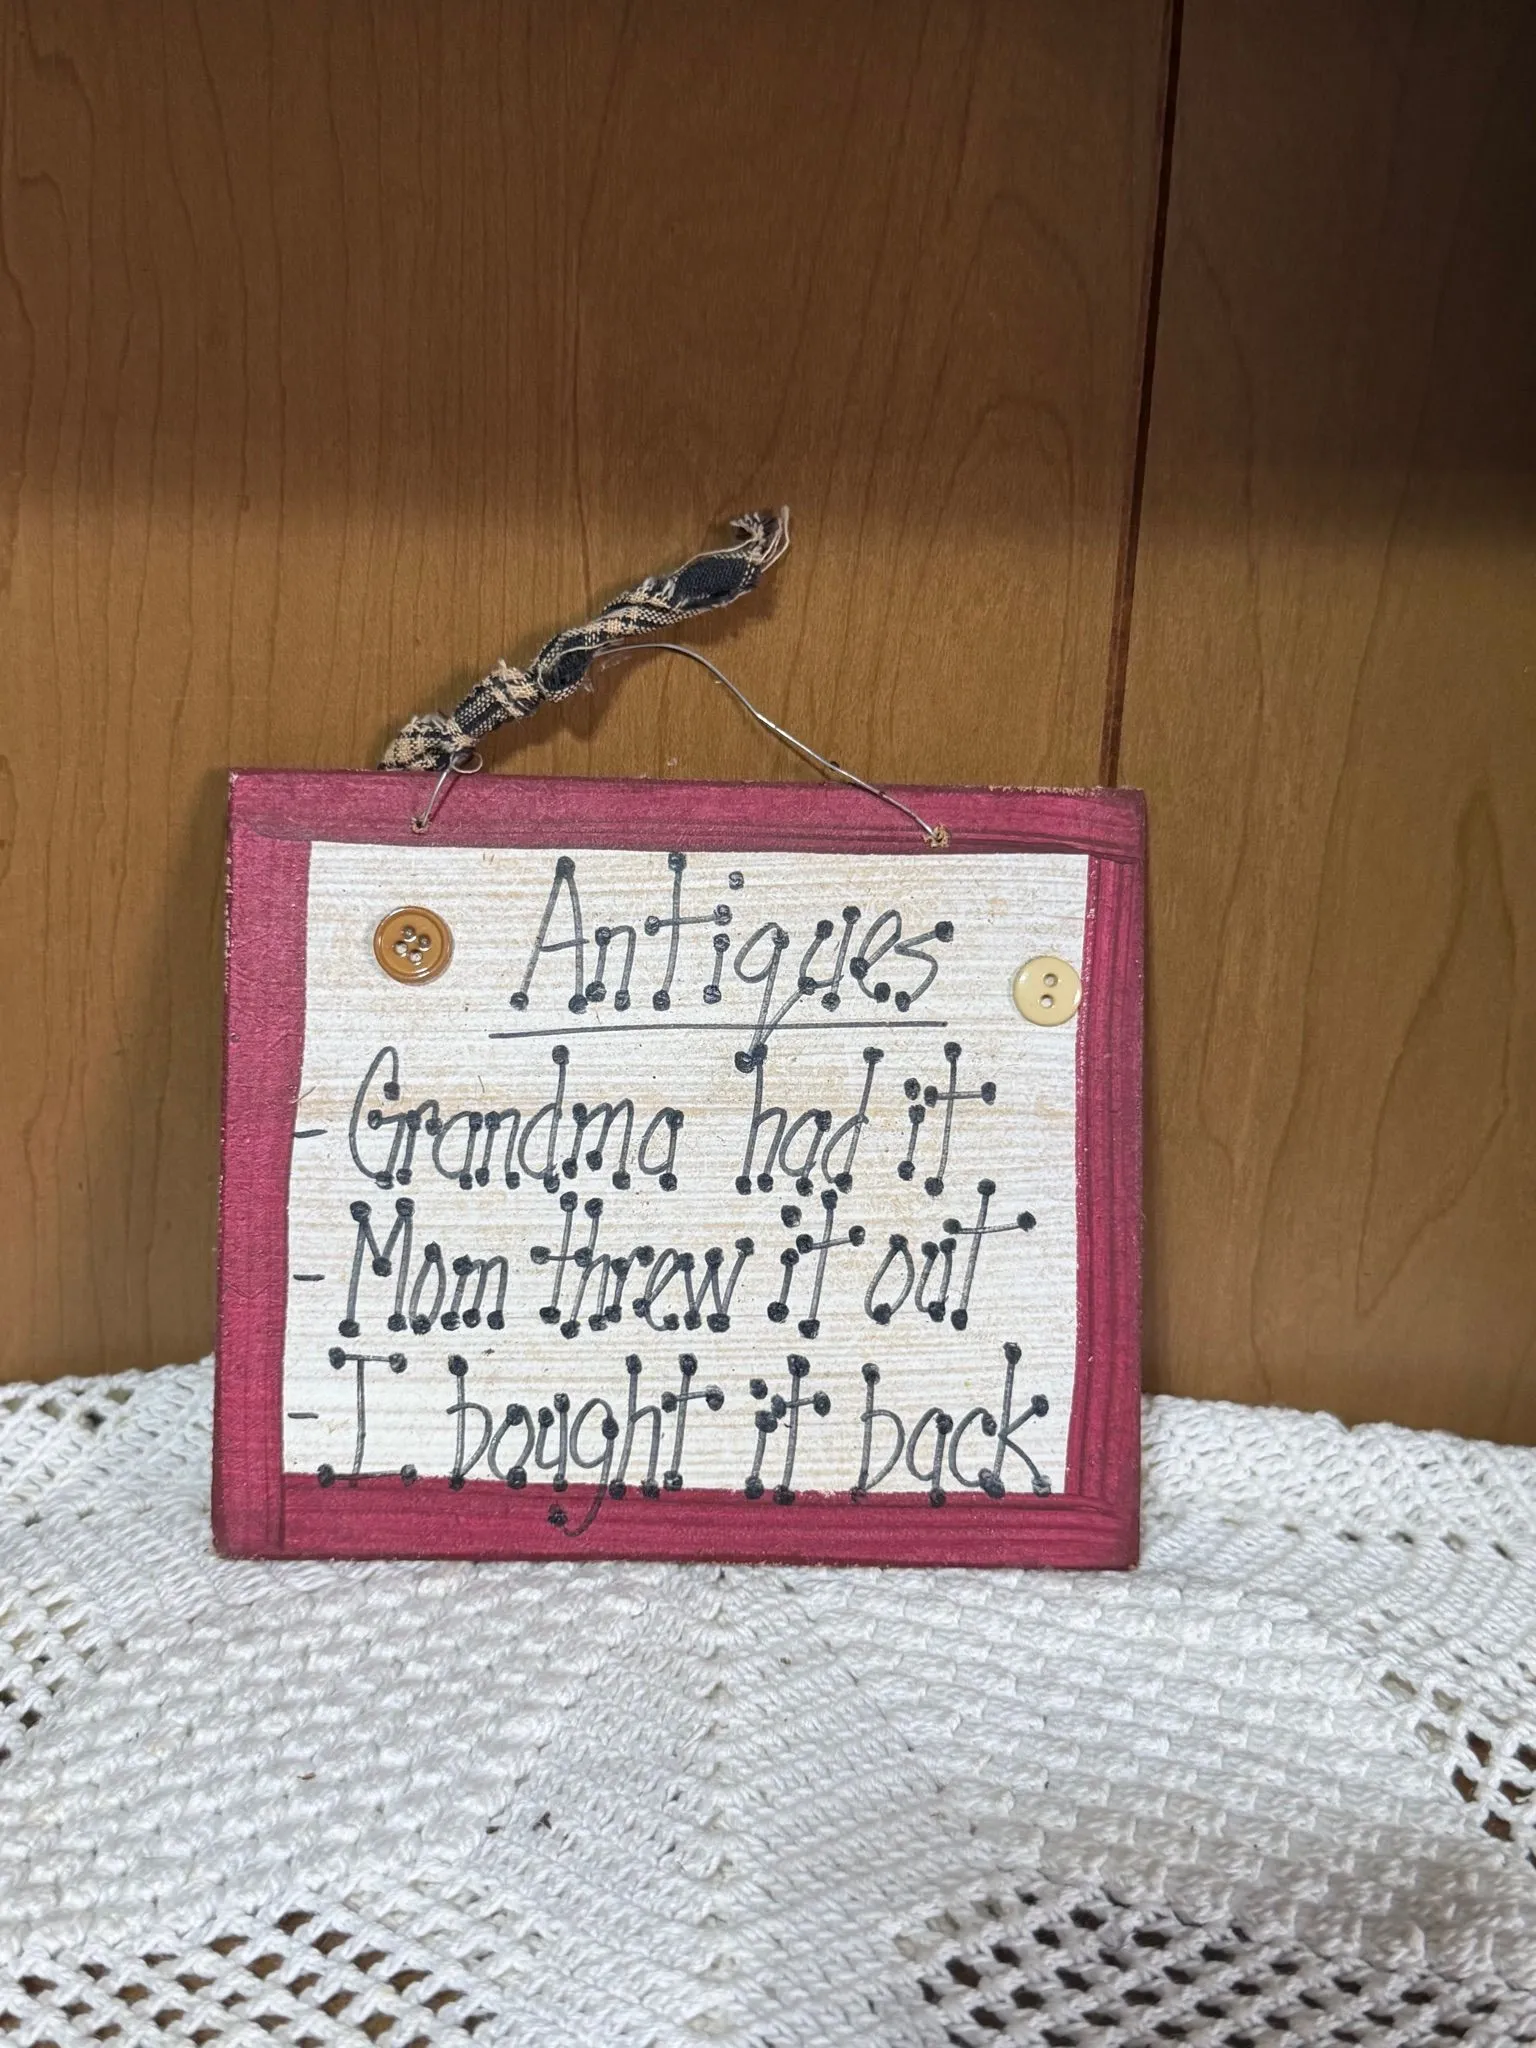 Antiques
- Grandma had it
- Mom threw it out
- I bought it back